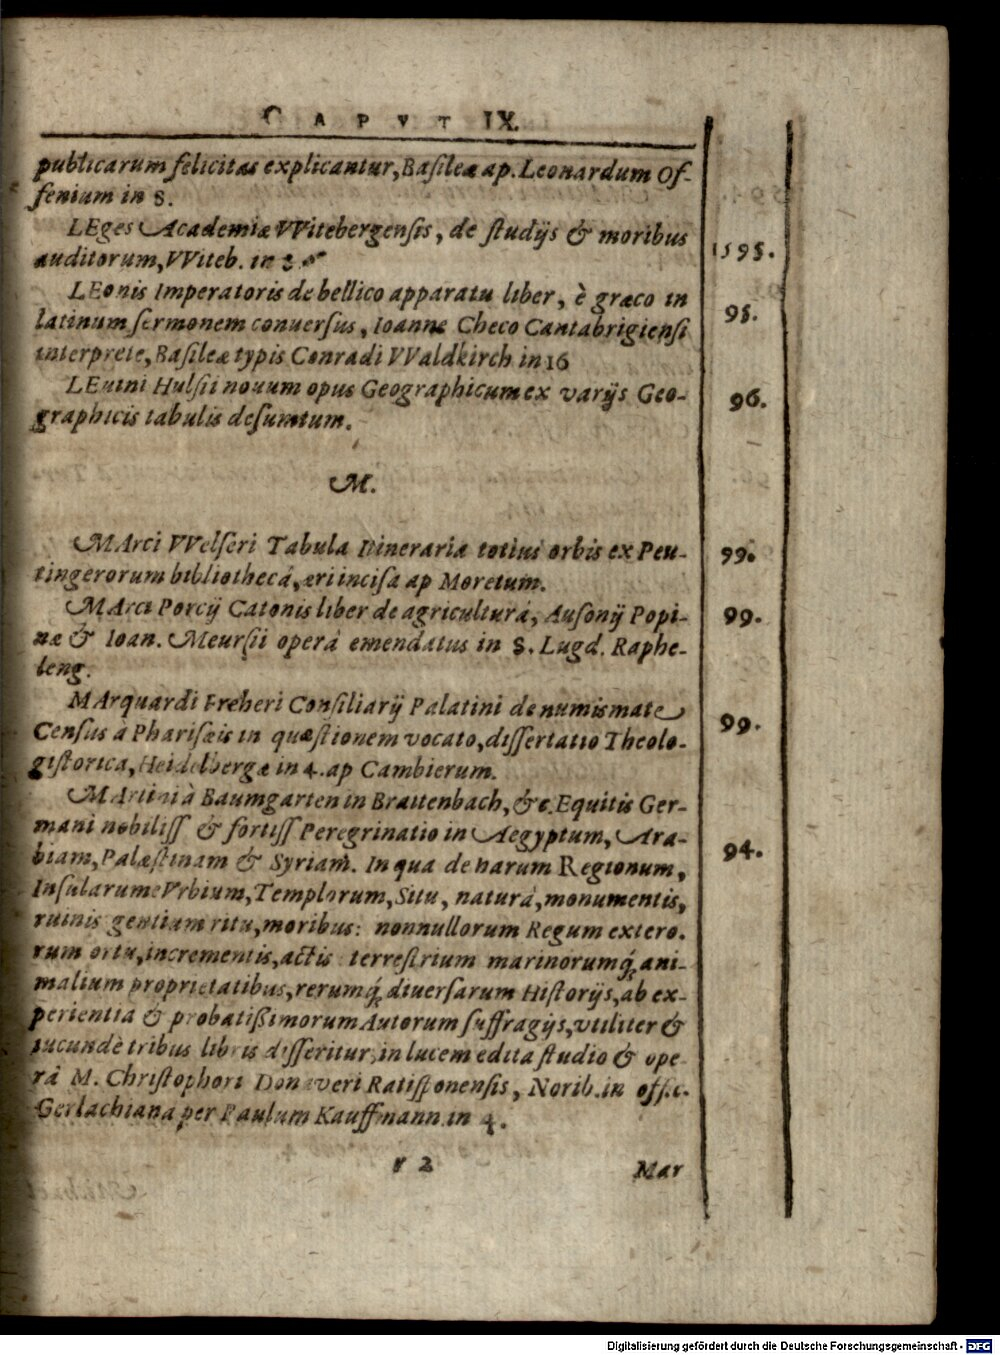 CAPVT IX.
publicarum felicitas explicantur, Basileæ ap. Leonardum Of-
fenium in 8.
LEges Academiæ VVitebergensis, de studijs & moribus 1595.
auditorum, VViteb. in
LEonis Imperatoris de bellico apparatu liber, è græco in 95.
latinum sermonem conuersus, Ioanne Checo Cantabrigiensi
interprete, Basileæ typis Conradi VValdkirch in 16
LEuini Hulsii nouum opus Geographicum ex varijs Geo- 96.
graphicis tabulis desumtum.
M.
MArci VVelseri Tabula Itineraria totius orbis ex Peu- 99.
tingerorum bibliothecâ, æri incisa ap Moretum.
MArci Porcij Catonis liber de agriculturâ, Ausonij Popi- 99.
næ & Ioan. Meursii operâ emendatus in 8. Lugd. Raphe-
leng.
MArquardi Freheri Consiliarij Palatini de numismate 99.
Census a Pharisæis in quæstionem vocato, dissertatio Theolo-
gistorica, Heidelbergæ in 4. ap Cambierum.
MArtini à Baumgarten in Braitenbach, &c. Equitis Ger-
mani nobiliss & fortiss Peregrinatio in Aegyptum, Ara- 94.
biam, Palæstinam & Syriam. In qua de harum Regionum,
Insularum Vrbium, Templorum, Situ, naturâ, monumentis,
ruinis gentium ritu, moribus: nonnullorum Regum extero-
rum ortu, incrementis, actis terrestrium marinorumq́, ani-
malium proprietatibus, rerumq́, diuersarum Historijs, ab ex-
perientia & probatißimorum Autorum suffragijs, vtiliter &
iucundè tribus libris disseritur, in lucem edita studio & ope-
râ M. Christophori Donaveri Ratisponensis, Norib. in offic.
Gerlachiana per Paulum Kauffmann in 4.
r 2 Mar
Digitalisierung gefördert durch die Deutsche Forschungsgemeinschaft - DFG